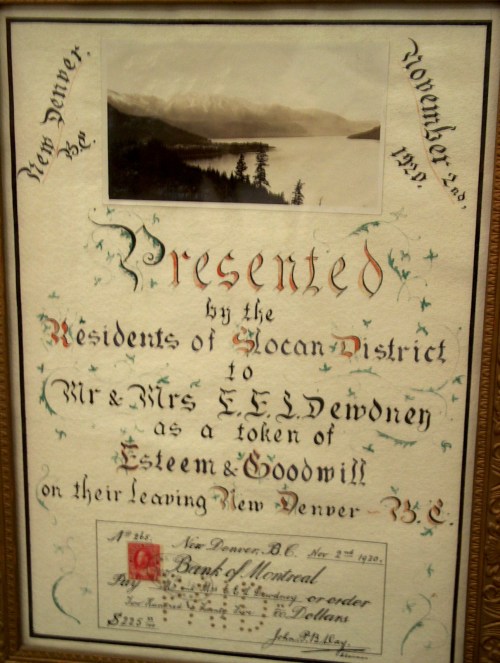 New Denver,
B.C.
November 2nd,
1920.
Presented
by the
Residents of Slocan District
to
Mr & Mrs E.E.L. Dewdney
as a token of
Esteem & Goodwill
on their leaving New Denver - B.C.
No 265. New Denver, B.C. Nov 2nd 1920.
Bank of Montreal
Pay Mr & Mrs E.E.L. Dewdney or order
Two Hundred & Twenty Five Dollars
$225